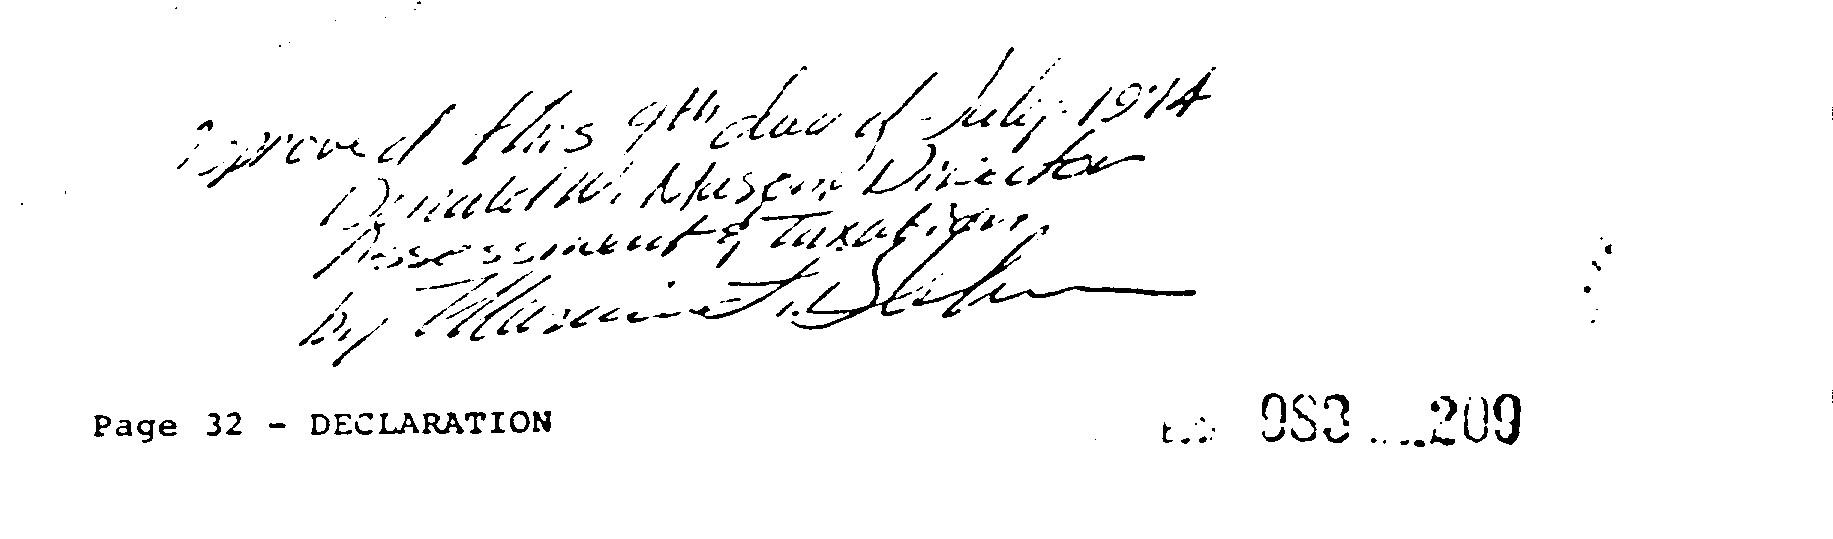 Approved this 9th day of July 1974
Donald W. Mason Director
Assessment & Taxation
by
Page 32 - DECLARATION
983 209